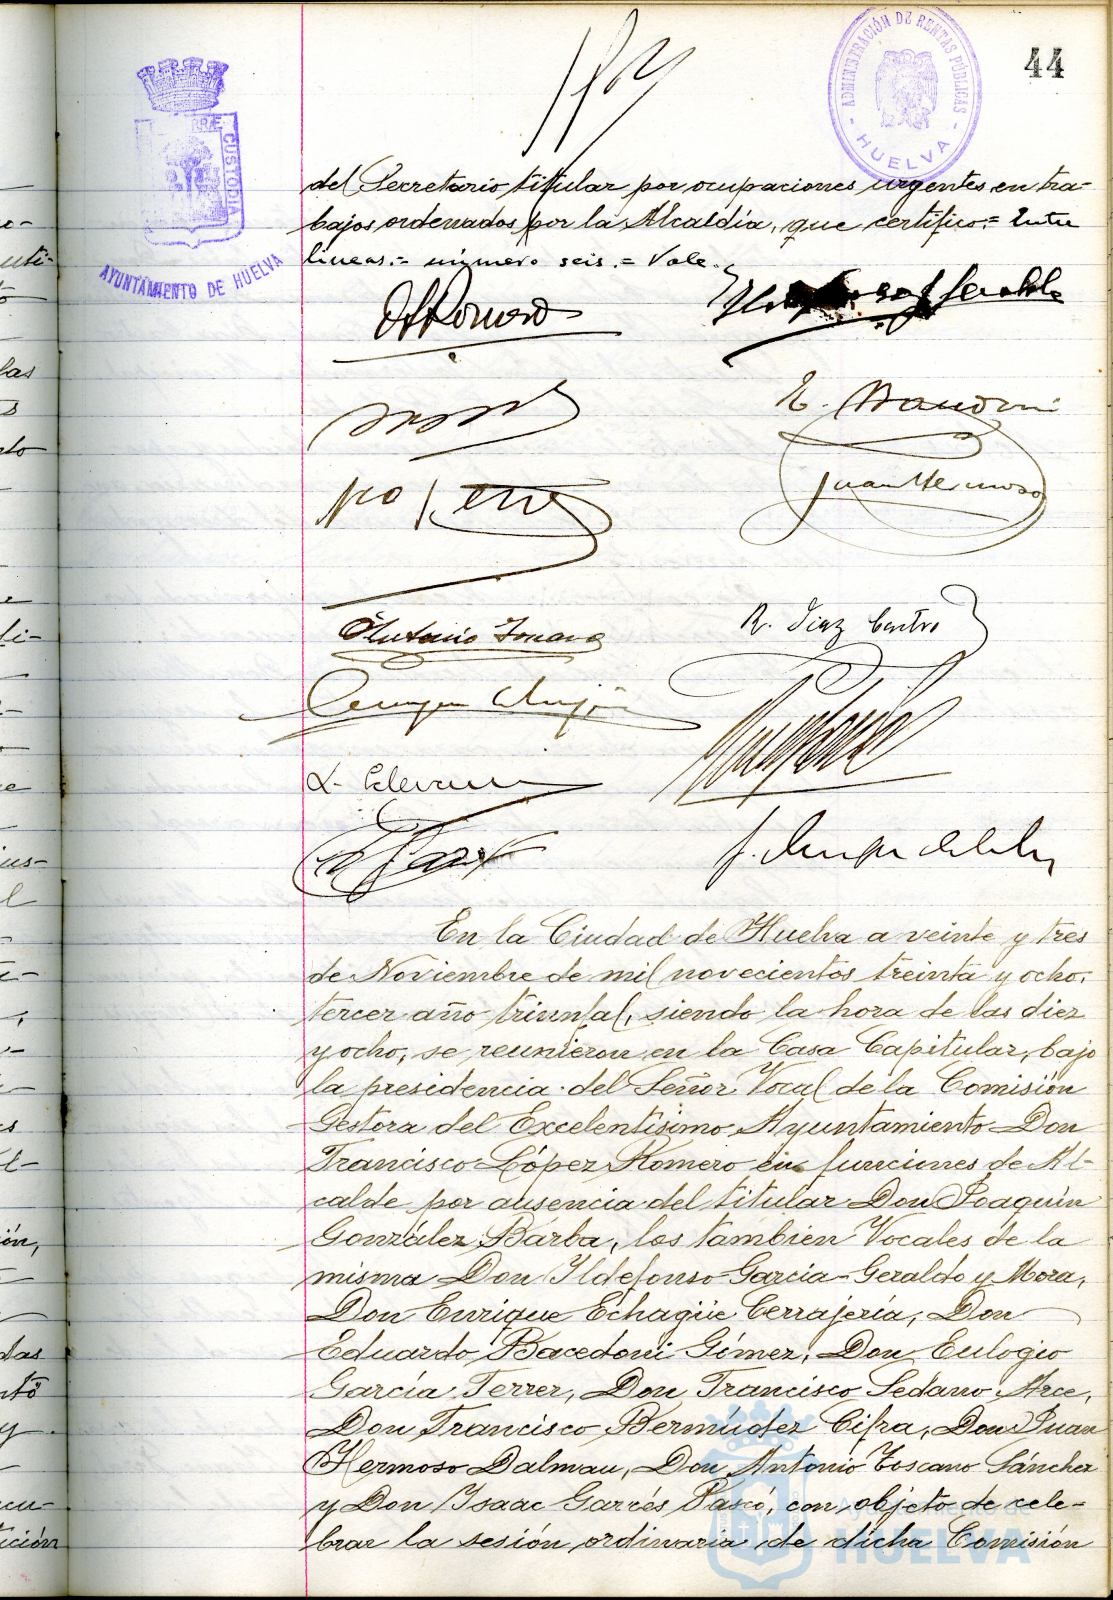 44
ADMINISTRACIÓN DE RENTAS PÚBLICAS
HUELVA
CUSTODIA
AYUNTAMIENTO DE HUELVA
del Secretario titular por ocupaciones urgentes, en tra-
bajos ordenados por la Alcaldía, que certifico.= Entre
lineas.= número seis.= Vale.
Juan Hermoso
Antonio Toscano
R. Diaz Castro
En la Ciudad de Huelva a veinte y tres
de Noviembre de mil novecientos treinta y ocho,
tercer año triunfal, siendo la hora de las diez
y ocho, se reunieron en la Casa Capitular, bajo
la presidencia del Señor Vocal de la Comisión
Gestora del Excelentísimo Ayuntamiento Don
Francisco López Romero en funciones de Al-
calde por ausencia del titular Don Joaquín
González Barba, los tambien Vocales de la
misma Don Ildefonso García-Geraldo y Mora,
Don Enrique Echagüe Cerrajería, Don
Eduardo Bacedoni Gómez, Don Eulogio
García Ferrer, Don Francisco Sedano Arce,
Don Francisco Bermúdez Cifra, Don Juan
Hermoso Dalmau, Don Antonio Toscano Sánchez
y Don Isaac Garcés Pascó, con objeto de cele-
brar la sesión ordinaria de dicha Comisión
Ayuntamiento de
HUELVA